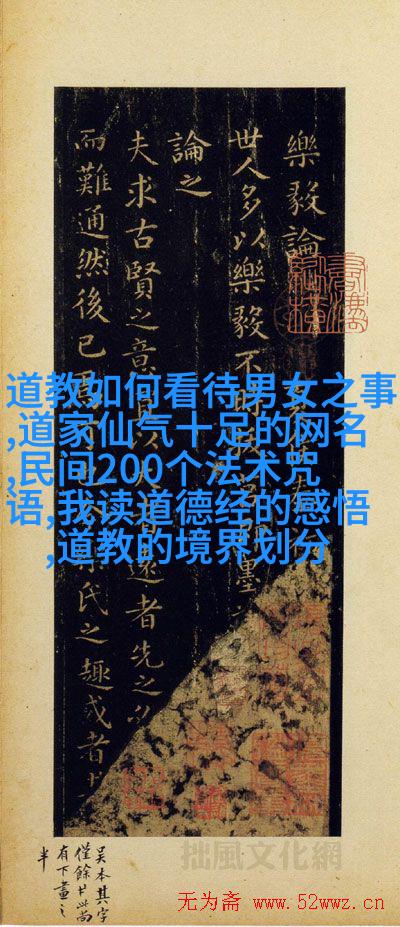 道教如何看待男女之事
,道家仙气十足的网名
,民间200个法术咒
语,我读道德经的感悟
,道教的境界划分
樂毅論
世人多以樂毅不時
論之
夫求古賢之意 遠者先之
而難通然後已 氏之趣或者
吴本其字
僅餘 此尚
有下畫之
半
拙風文化網
无为斋 www.52wwz.cn